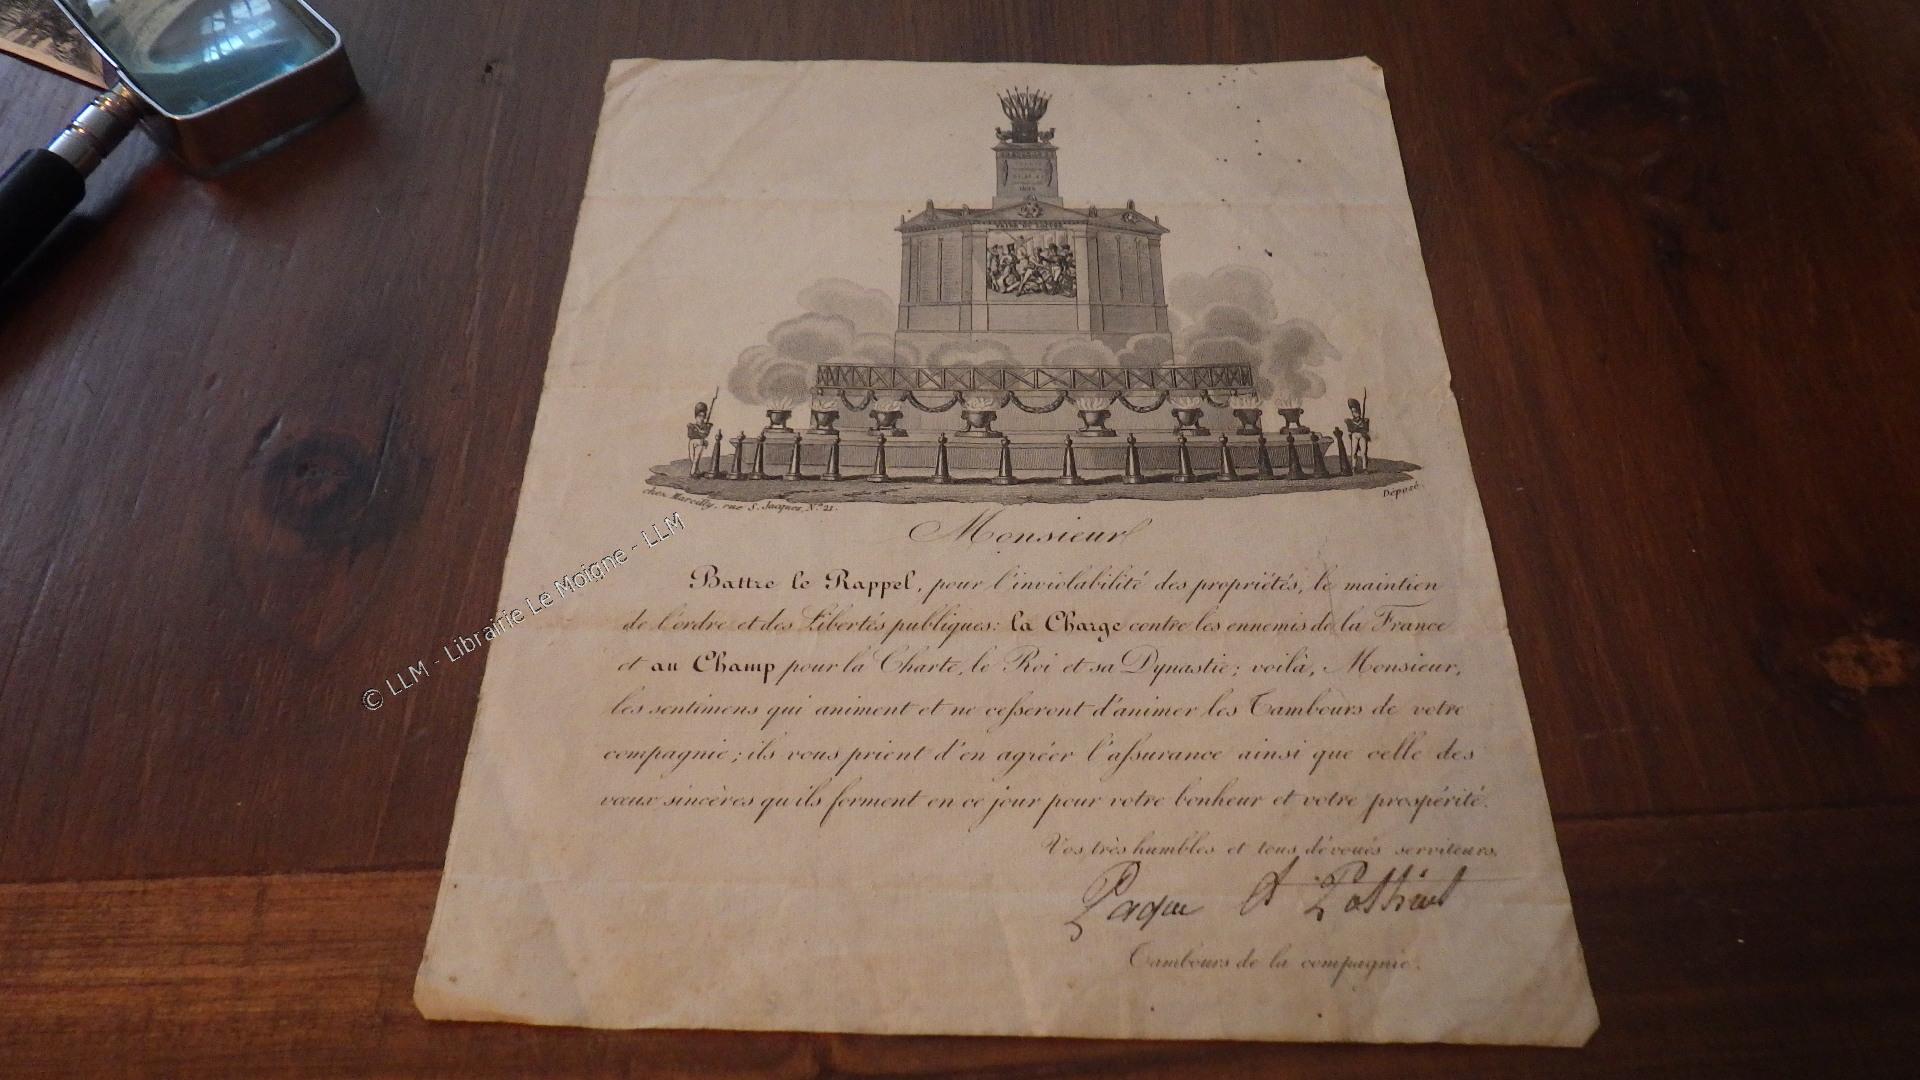 PRISE DU LOUVRE
chez Marcilly, rue S. Jacques, N.° 21.
Déposé.
Monsieur
Battre le Rappel, pour l'inviolabilité des propriétés, le maintien
de l'ordre et des Libertés publiques: la Charge contre les ennemis de la France
et au Champ pour la Charte, le Roi et sa Dynastie; voilà, Monsieur,
les sentimens qui animent et ne cesseront d'animer les Tambours de votre
compagnie; ils vous prient d'en agréer l'assurance ainsi que celle des
vœux sincères qu'ils forment en ce jour pour votre bonheur et votre prospérité.
Vos très humbles et tous dévoués serviteurs.
Paque et
Tambours de la compagnie.
© LLM - Librairie Le Moigne - LLM